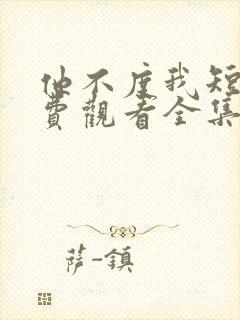 他不度我短
費觀看全集
萨-鎮